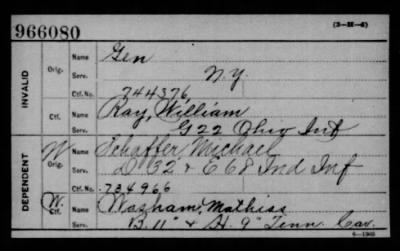 966080
(3-H-6)
INVALID
Orig.
Name
Gen
Serv.
N.Y.
Ctf. No.
744376
Ctf.
Name
Ray, William
Serv.
G 22 Ohio Inf
DEPENDENT
W
Orig.
Name
Schaffer Michael
Serv.
D 32 & E 68 Ind Inf
Ctf. No.
734966
W.
Ctf.
Name
Washam, Mathias
Serv.
B. 11" & H. 9" Tenn. Cav.